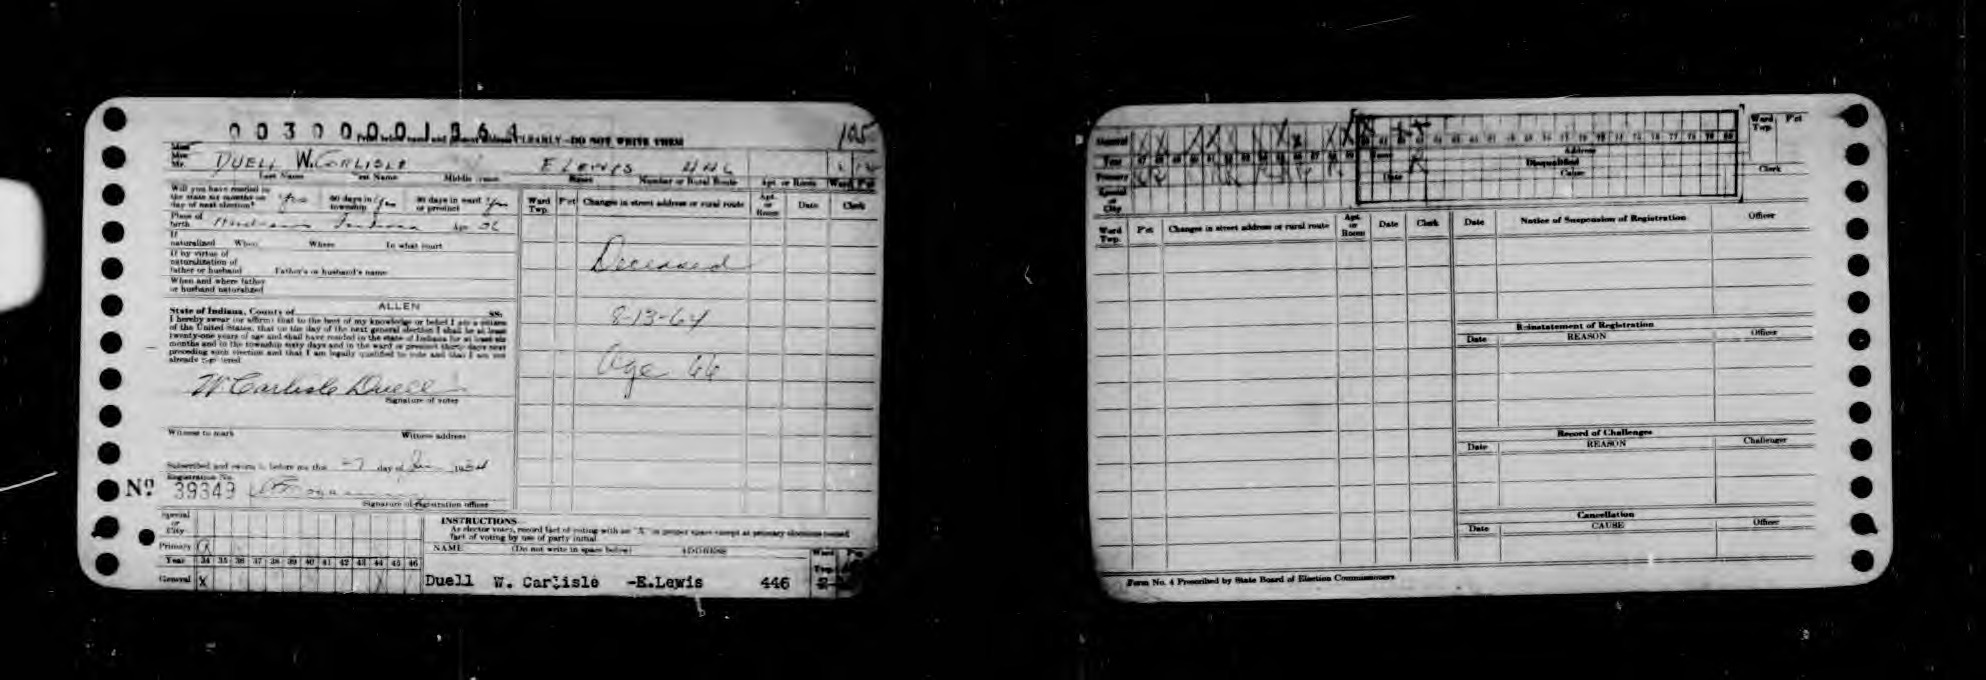 00300001964
CLEARLY—DO NOT WRITE THEM
105
Miss
Mrs.
Mr. DUELL W. CARLISLE E LEWIS 446
Last Name First Name Middle Name Street Number or Rural Route Apt. or Room Ward Pct
Will you have resided in the state six months on day of next election? Yes 60 days in township Yes 30 days in ward or precinct Yes
Place of birth Indiana Age 36
If naturalized When Where In what court
If by virtue of naturalization of father or husband Father's or husband's name
When and where father or husband naturalized
State of Indiana, County of ALLEN SS:
I hereby swear (or affirm) that to the best of my knowledge or belief I am a citizen
of the United States, that on the day of the next general election I shall be at least
twenty-one years of age and shall have resided in the state of Indiana for at least six
months and in the township sixty days and in the ward or precinct thirty days next
preceding such election and that I am legally qualified to vote and that I am not
already registered
W Carlisle Duell
Signature of voter
Witness to mark Witness address
Subscribed and sworn to before me this day of 1934
Registration No.
No 39349
Signature of registration officer
Ward Twp. Pct Changes in street address or rural route Apt. or Room Date Clerk
Deceased
8-13-64
Age 66
Special or City
Primary
Year 34 35 36 37 38 39 40 41 42 43 44 45 46
General X
INSTRUCTIONS
As elector votes, record fact of voting with an "X" in proper space except at primary elections record
fact of voting by use of party initial
NAME (Do not write in space below) ADDRESS Ward Twp. Pct
Duell W. Carlisle -E.Lewis 446
General
Year 47 48 49 50 51 52 53 54 55 56 57 58 59
Primary
Special or City
Name Address
Date Disqualified
Cause
Ward Twp. Pct
Clerk
Ward Twp. Pct Changes in street address or rural route Apt. or Room Date Clerk
Date Notice of Suspension of Registration Officer
Reinstatement of Registration
Date REASON Officer
Record of Challenges
Date REASON Challenger
Cancellation
Date CAUSE Officer
Form No. 4 Prescribed by State Board of Election Commissioners